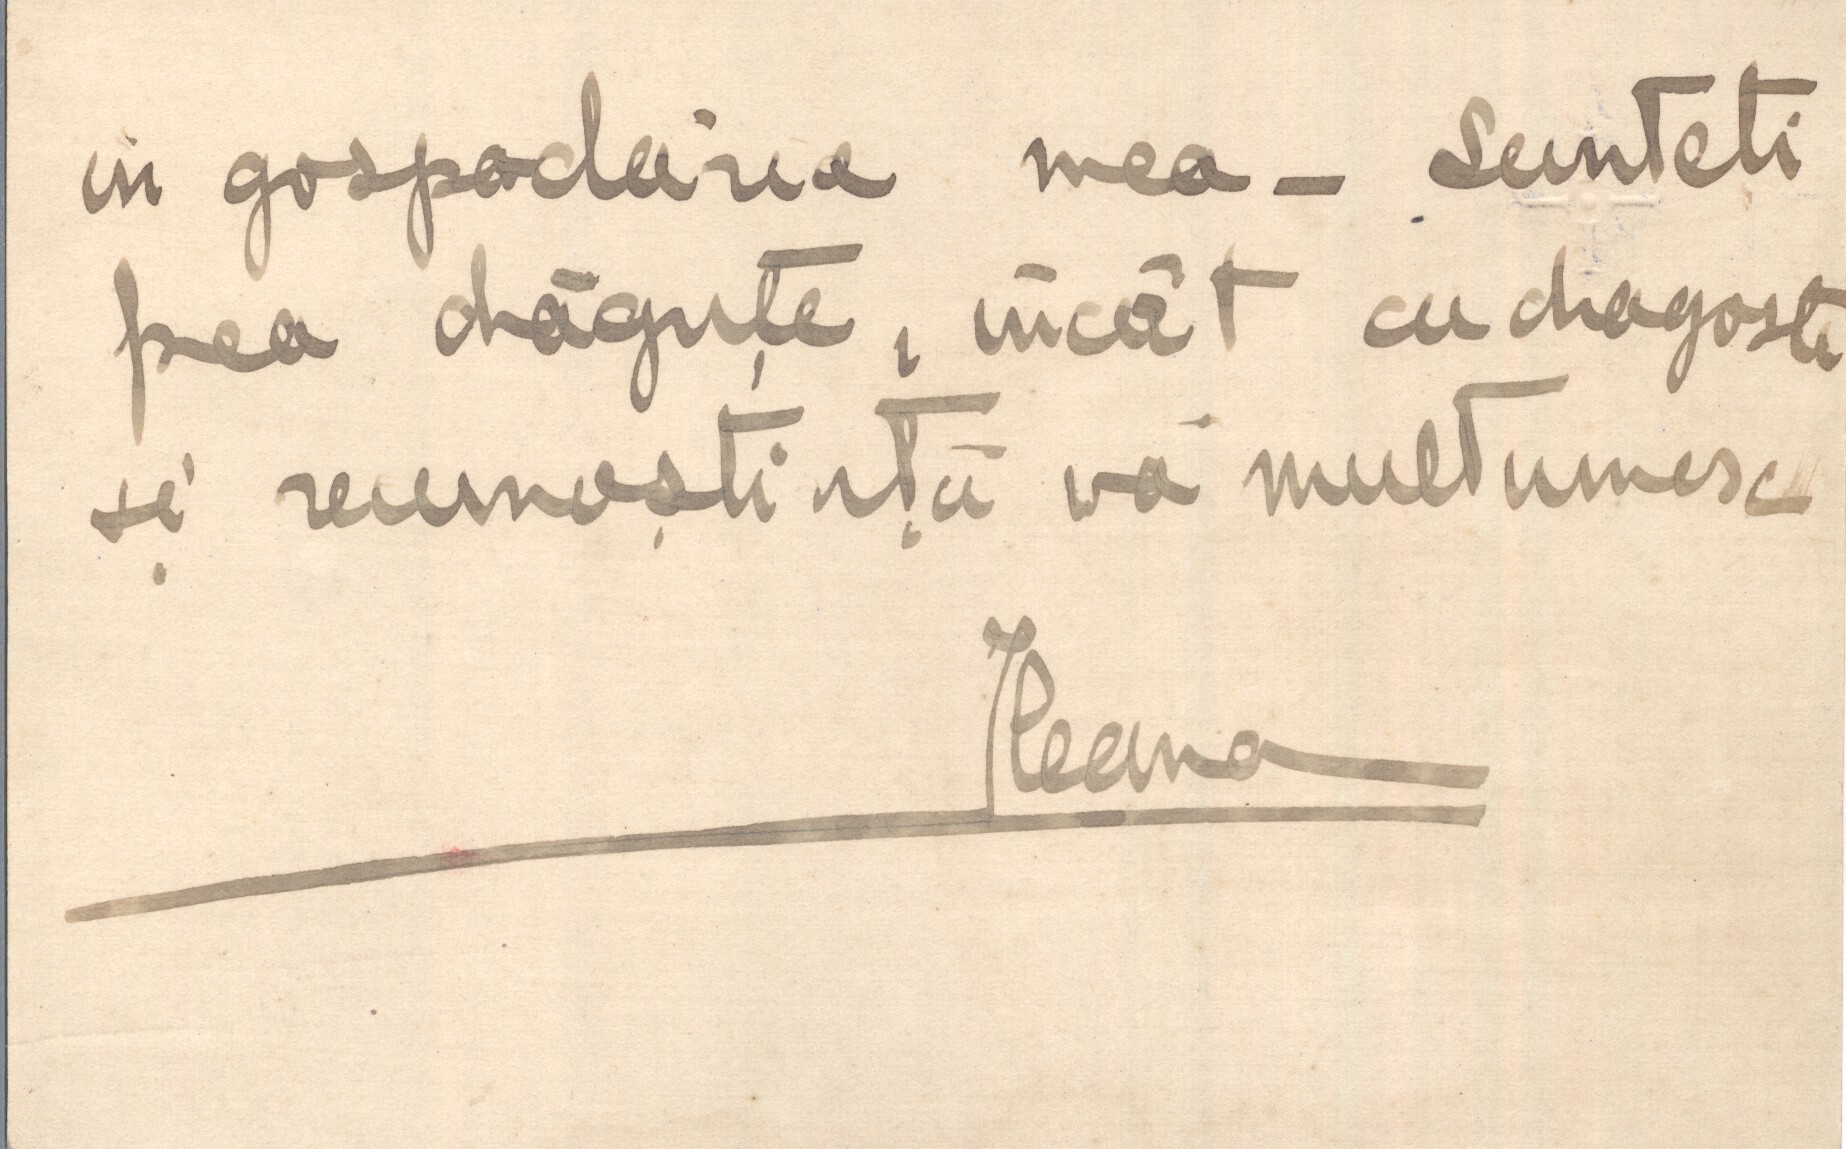 in gospodaria mea - Sunteti
prea drăguțe, încât cu dragoste
și recunoștință vă multumesc
Ileana